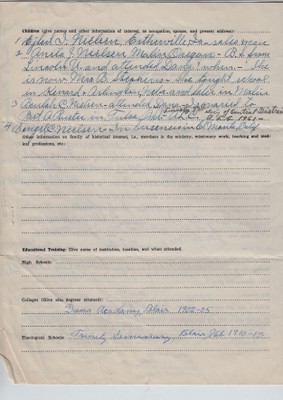 Children (Give names and other information of interest, as occupation, spouse, and present address):
1 Ejlert I. Nielsen, Estherville Ia - sales man
2 Anita J. Nielsen Malin Oregon - B.A. from
Lincoln U. and attended Dana - She
is now Mrs. B. Stephens - She taught school
in Kenard + Arlington Nebr. and later in Malin
3 Beulah C. Nielsen - attended Dana - married to
in Tulsa,
4 Nielsen - In business in El Monte, Calif
Other information on family of historical interest, i.e., members in the ministry, missionary work, teaching and medical professions, etc.:
Educational Training: Give name of institution, location, and when attended.
High Schools:
Colleges (Give also degrees attained):
Dana Academy, Blair 1902-05
Theological Schools: Trinity Seminary, Blair Neb 1910-13